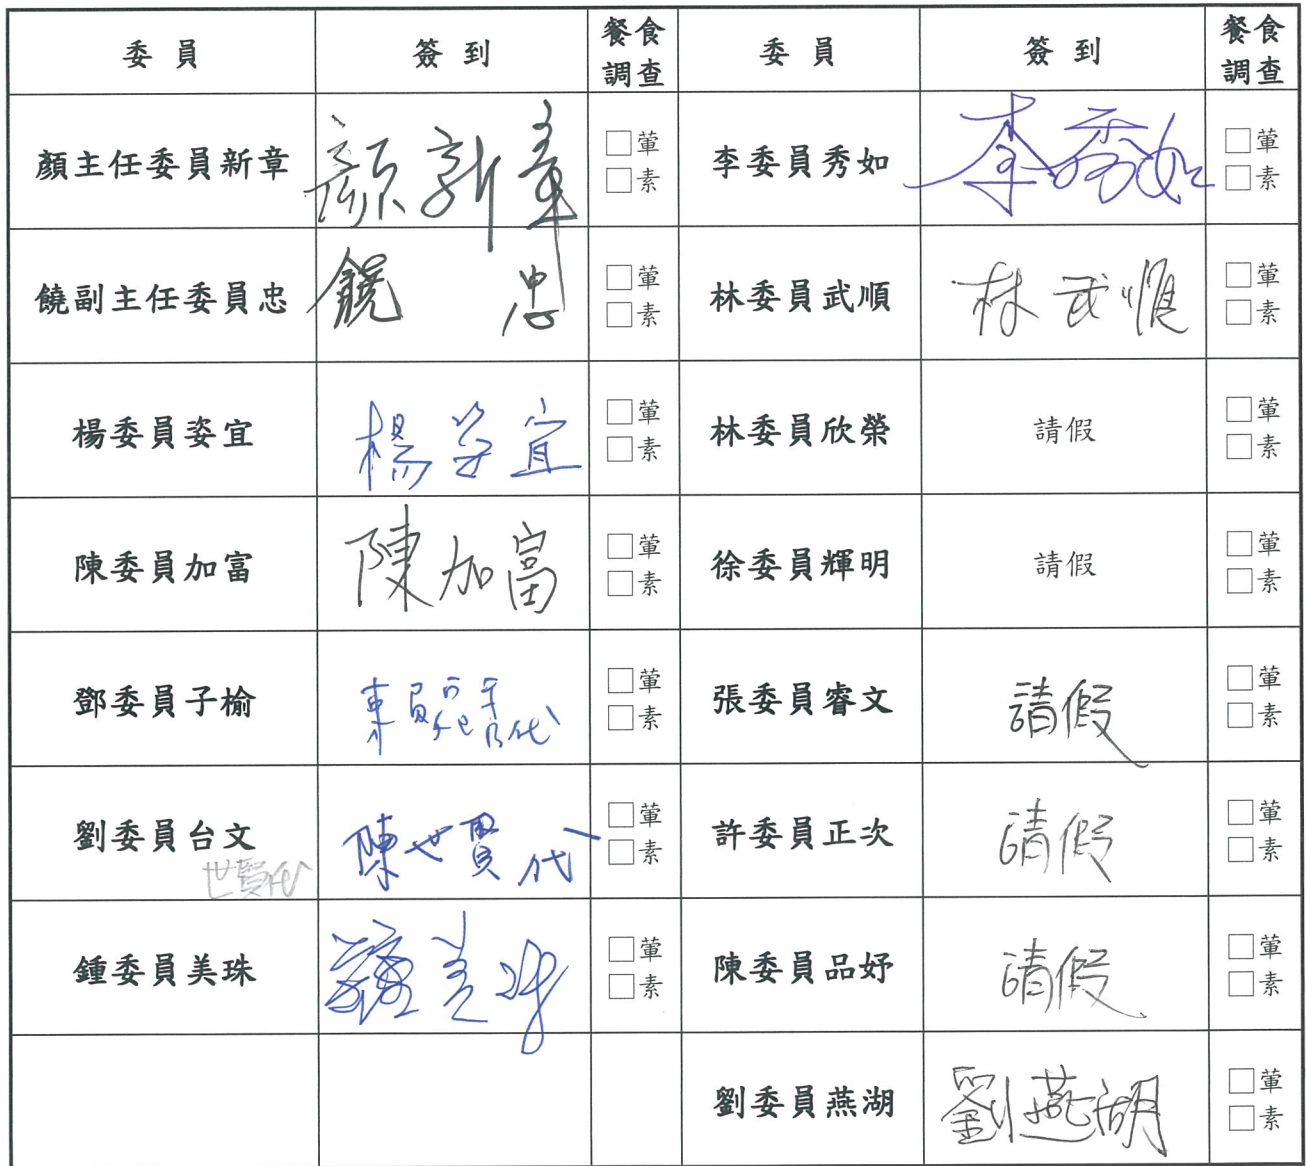 委員 簽到 餐食調查 委員 簽到 餐食調查
顏主任委員新章 顏新章 □葷 □素 李委員秀如 李秀如 □葷 □素
饒副主任委員忠 饒忠 □葷 □素 林委員武順 林武順 □葷 □素
楊委員姿宜 楊姿宜 □葷 □素 林委員欣榮 請假 □葷 □素
陳委員加富 陳加富 □葷 □素 徐委員輝明 請假 □葷 □素
鄧委員子榆 代 □葷 □素 張委員睿文 請假 □葷 □素
劉委員台文 陳世賢代 □葷 □素 許委員正次 請假 □葷 □素
世賢代
鍾委員美珠 鍾美珠 □葷 □素 陳委員品妤 請假 □葷 □素
劉委員燕湖 劉燕湖 □葷 □素